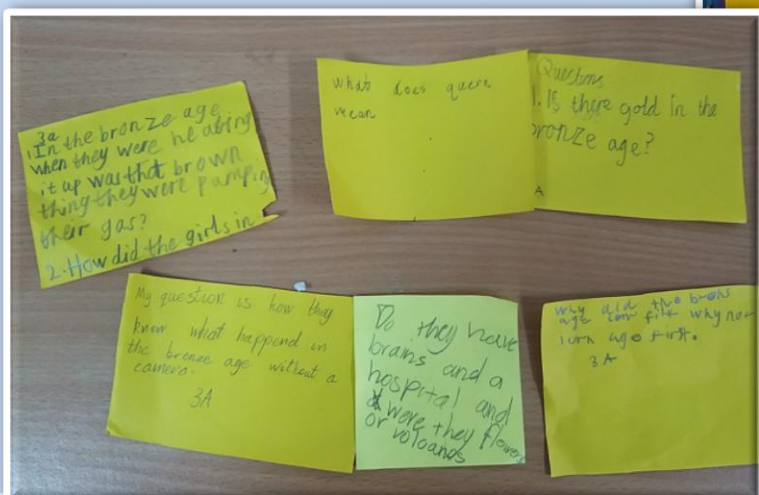 3a
1.In the bronze age
when they were heating
it up was that brown
thing they were pumping
their gas?
2.How did the girls in
what does quern
mean
Questions
1. Is there gold in the
bronze age?
A
My question is how they
know what happend in
the bronze age without a
camera.
3A
Do they have
brains and a
hospital and
were they flowers
or volcanos
why did the
age com first why not
iorn age first.
3A